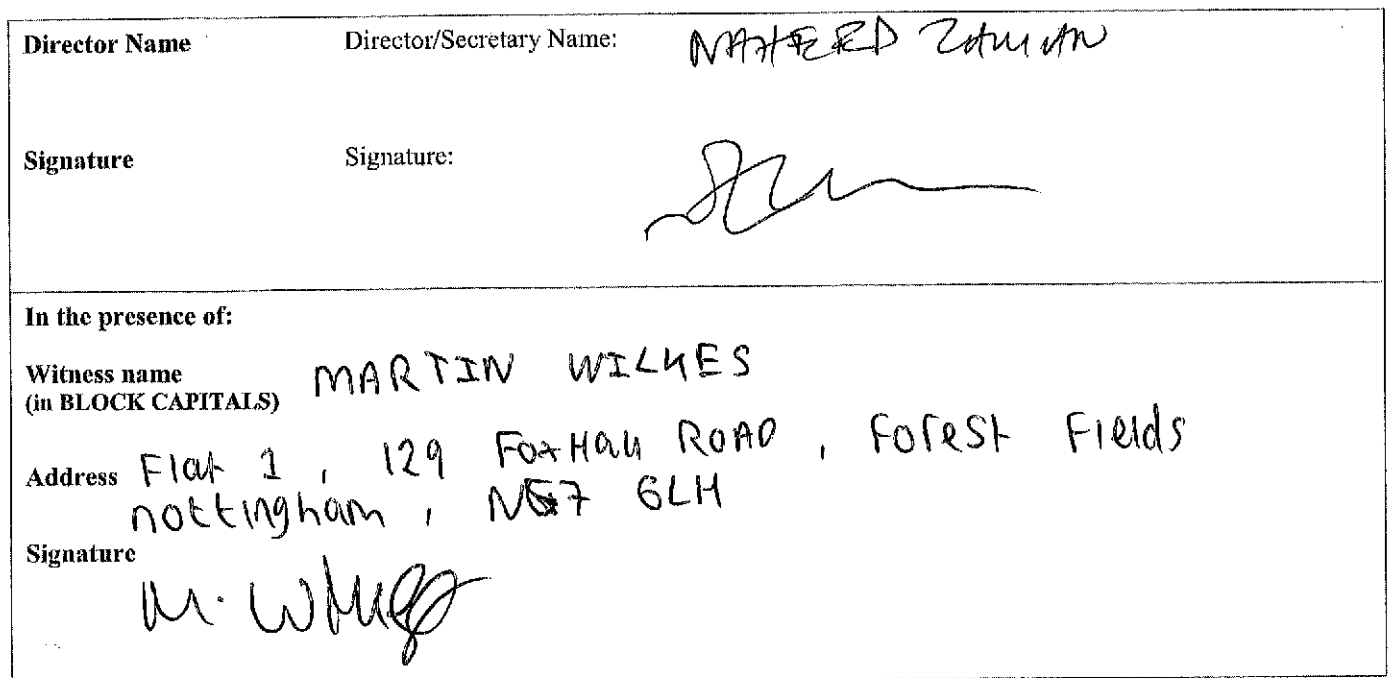 Director Name Director/Secretary Name: NAHEED ZAMAN
Signature Signature:
In the presence of:
Witness name MARTIN WILKES
(in BLOCK CAPITALS)
Address Flat 1, 129 FoxHall ROAD, Forest Fields
nottingham, NG7 6LH
Signature
M. Wilkes